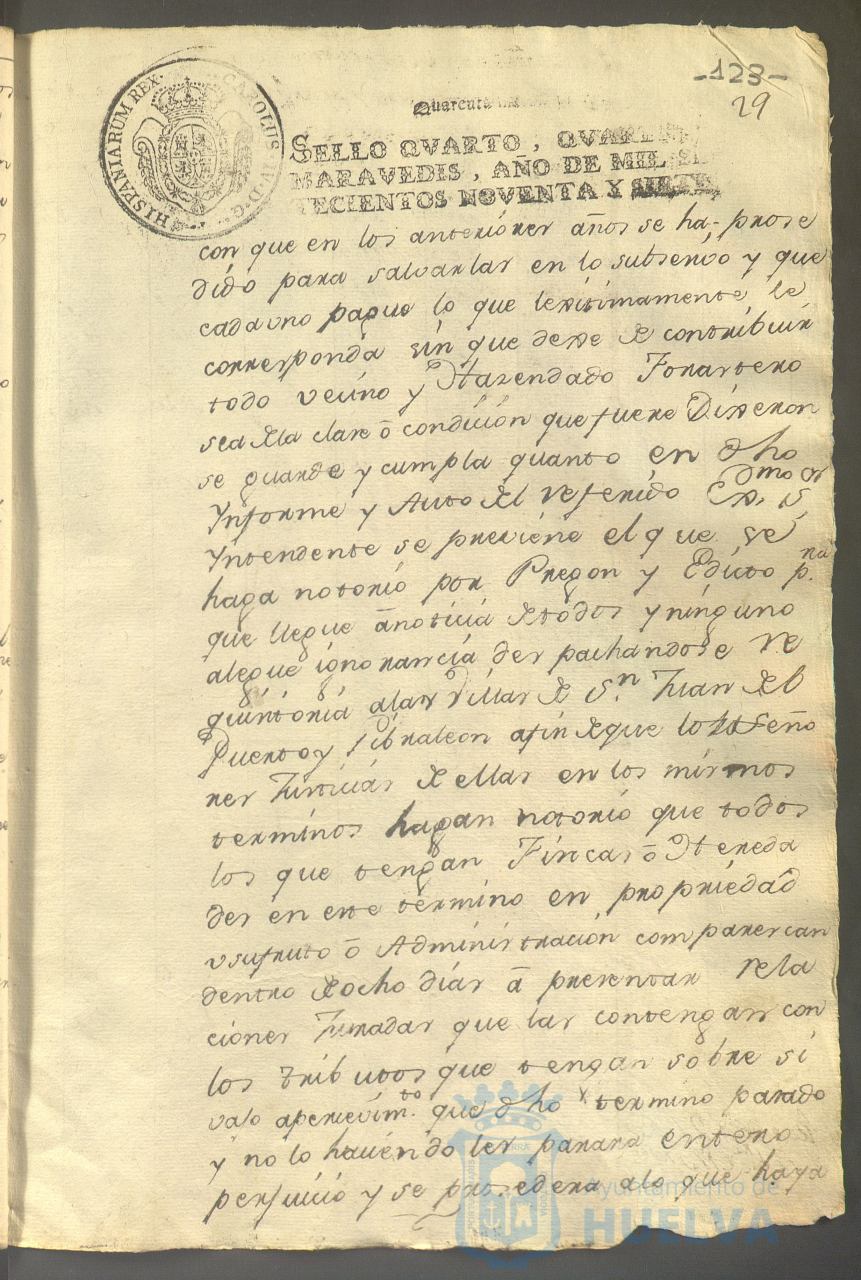 -123-
29
HISPANIARUM REX. CAROLUS. IV. D. G.
Quarenta
SELLO QVARTO, QVAREN
MARAVEDIS, AÑO DE MIL SE
TECIENTOS NOVENTA Y SIETE
con que en los anterióres años se ha prose
dido para salvarlas en lo subsesivo y que
cada vno pague lo que lexitimamente le
corresponda sin que dexe de contribuir
todo vecino y Hazendado Forastero
sea dela clase ó condición que fuere Dixeron
se guarde y cumpla quanto en dho
Ynforme y Auto del referido Exmo Sr
Yntendente se previene el que se
haga notorio por Pregon y Edicto p.na
que llegue á noticia de todos y ninguno
alegue ignorancia despachandose re
quisitoria alas Villas de Sn Juan del
Puerto y Gibraleon afin de que los Seño
res Justicias de ellas en los mismos
terminos hagan notorio que todos
los que tengan Fincas ó Hereda
des en este término en propriedad
vsufruto ó Administración comparescan
dentro de ocho dias á presentar rela
ciones Juradas que las contengan con
los tributos que tengan sobre si
vajo apersevimto que dho termino pasado
y no lo haciendo les parara entero
perjuicio y se prosedera alo que haya
Ayuntamiento de
HUELVA